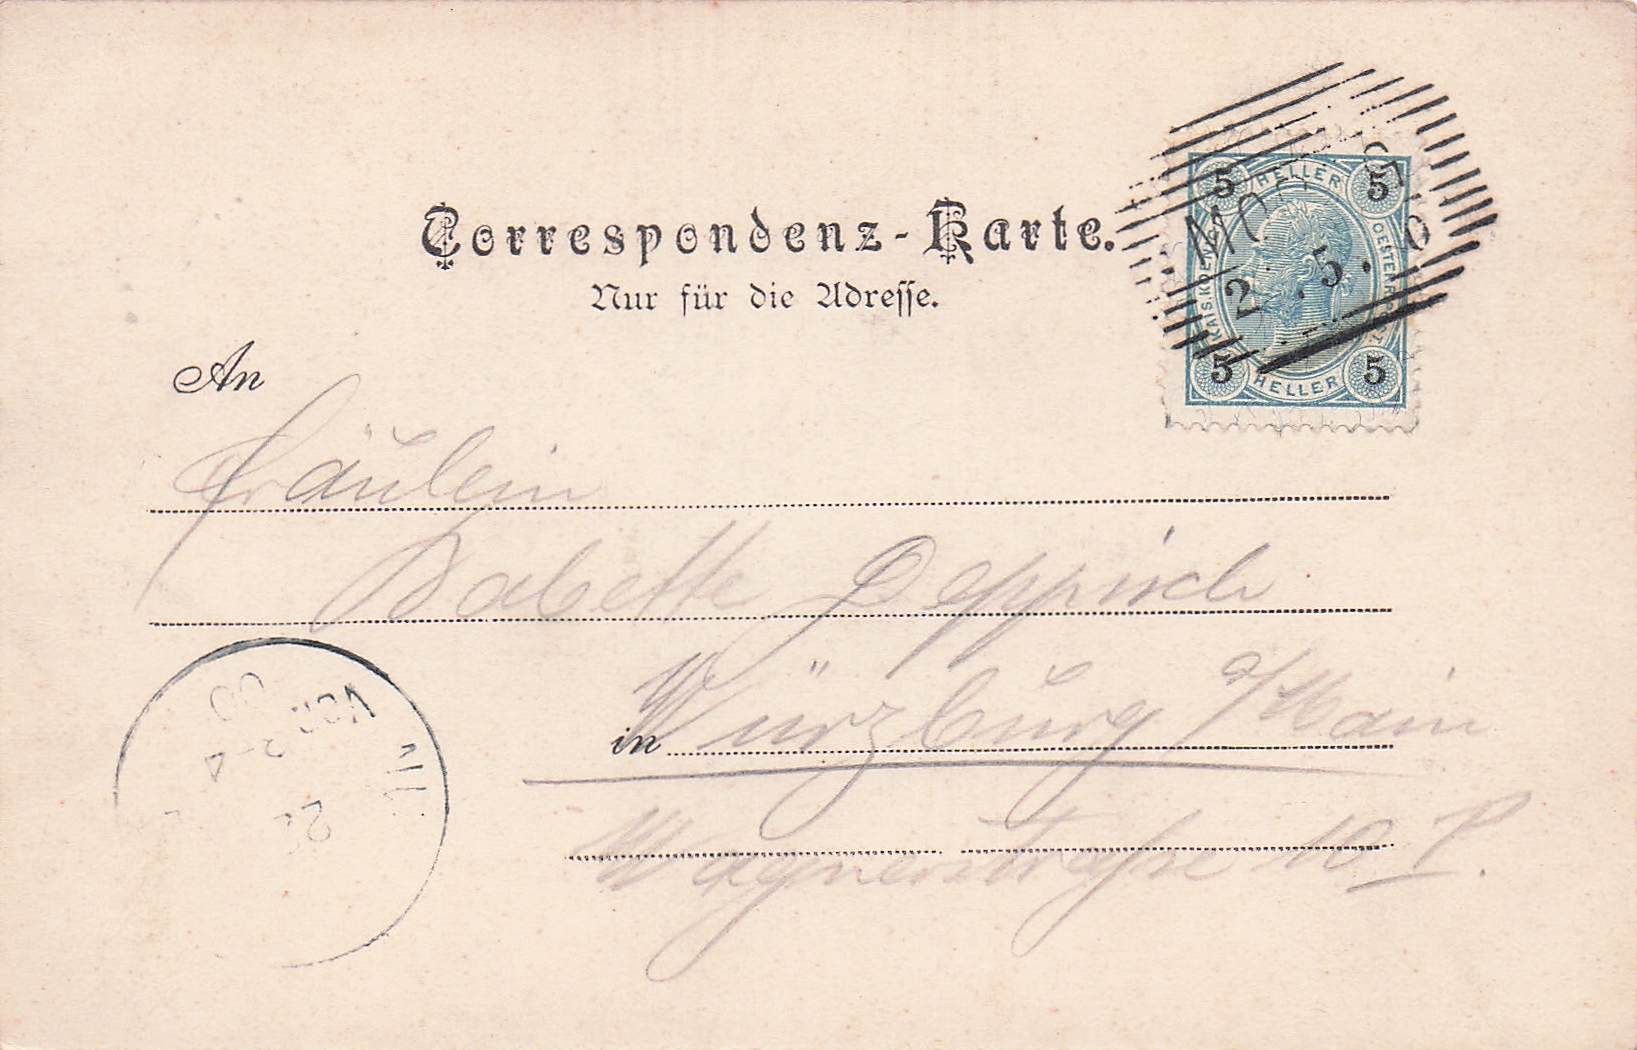 Correspondenz-Karte.
Nur für die Adresse.
5 HELLER 5
KAIS. KÖNIGL. OESTERR. POST
5 HELLER 5
2 . 5 .
An
Fräulein
Babette Deppisch
in Würzburg a/Main
Wagnerstraße 10 I.
VOR 00
2-4